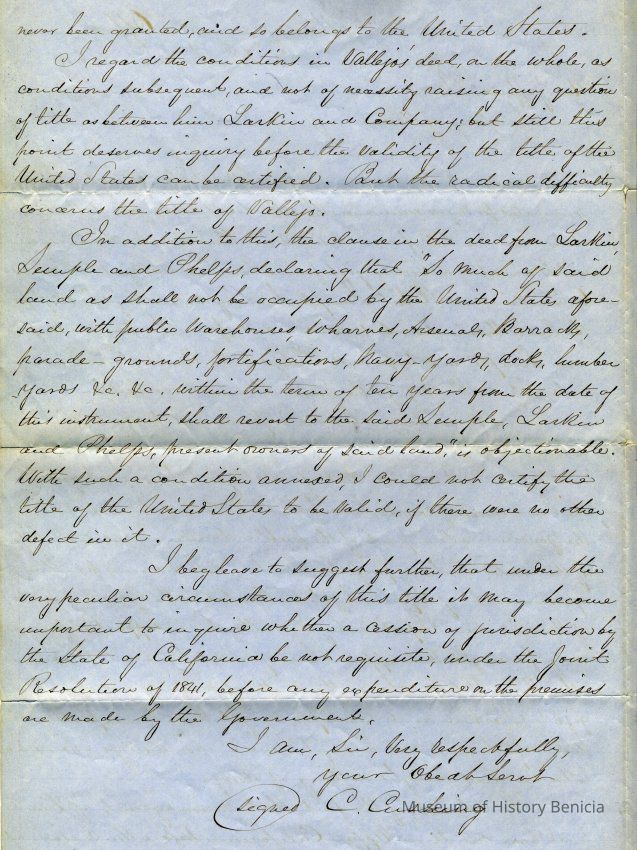 never been granted, and so belongs to the United States.
I regard the conditions in Vallejo's deed, on the whole, as
conditions subsequent, and not of necessity raising any question
of title as between him Larkin and Company; but still this
point deserves inquiry before the validity of the title of the
United States can be certified. But the radical difficulty
concerns the title of Vallejo.
In addition to this, the clause in the deed from Larkin,
Semple and Phelps, declaring that "So much of said
land as shall not be occupied by the United States afore-
said, with public Warehouses, Wharves, Arsenals, Barracks,
parade-grounds, fortifications, Navy-Yard, docks, lumber
-yards &c. &c. within the term of ten years from the date of
this instrument, shall revert to the said Semple, Larkin
and Phelps, present owners of said land," is objectionable.
With such a condition annexed, I could not certify the
title of the United States to be valid, if there were no other
defect in it.
I beg leave to suggest further, that under the
very peculiar circumstances of this title it may become
important to inquire whether a cession of jurisdiction by
the State of California be not requisite, under the Joint
Resolution of 1841, before any expenditure on the premises
are made by the Government.
I am, Sir, Very respectfully,
your Obedt Servt
(signed C. Cushing
Museum of History Benicia